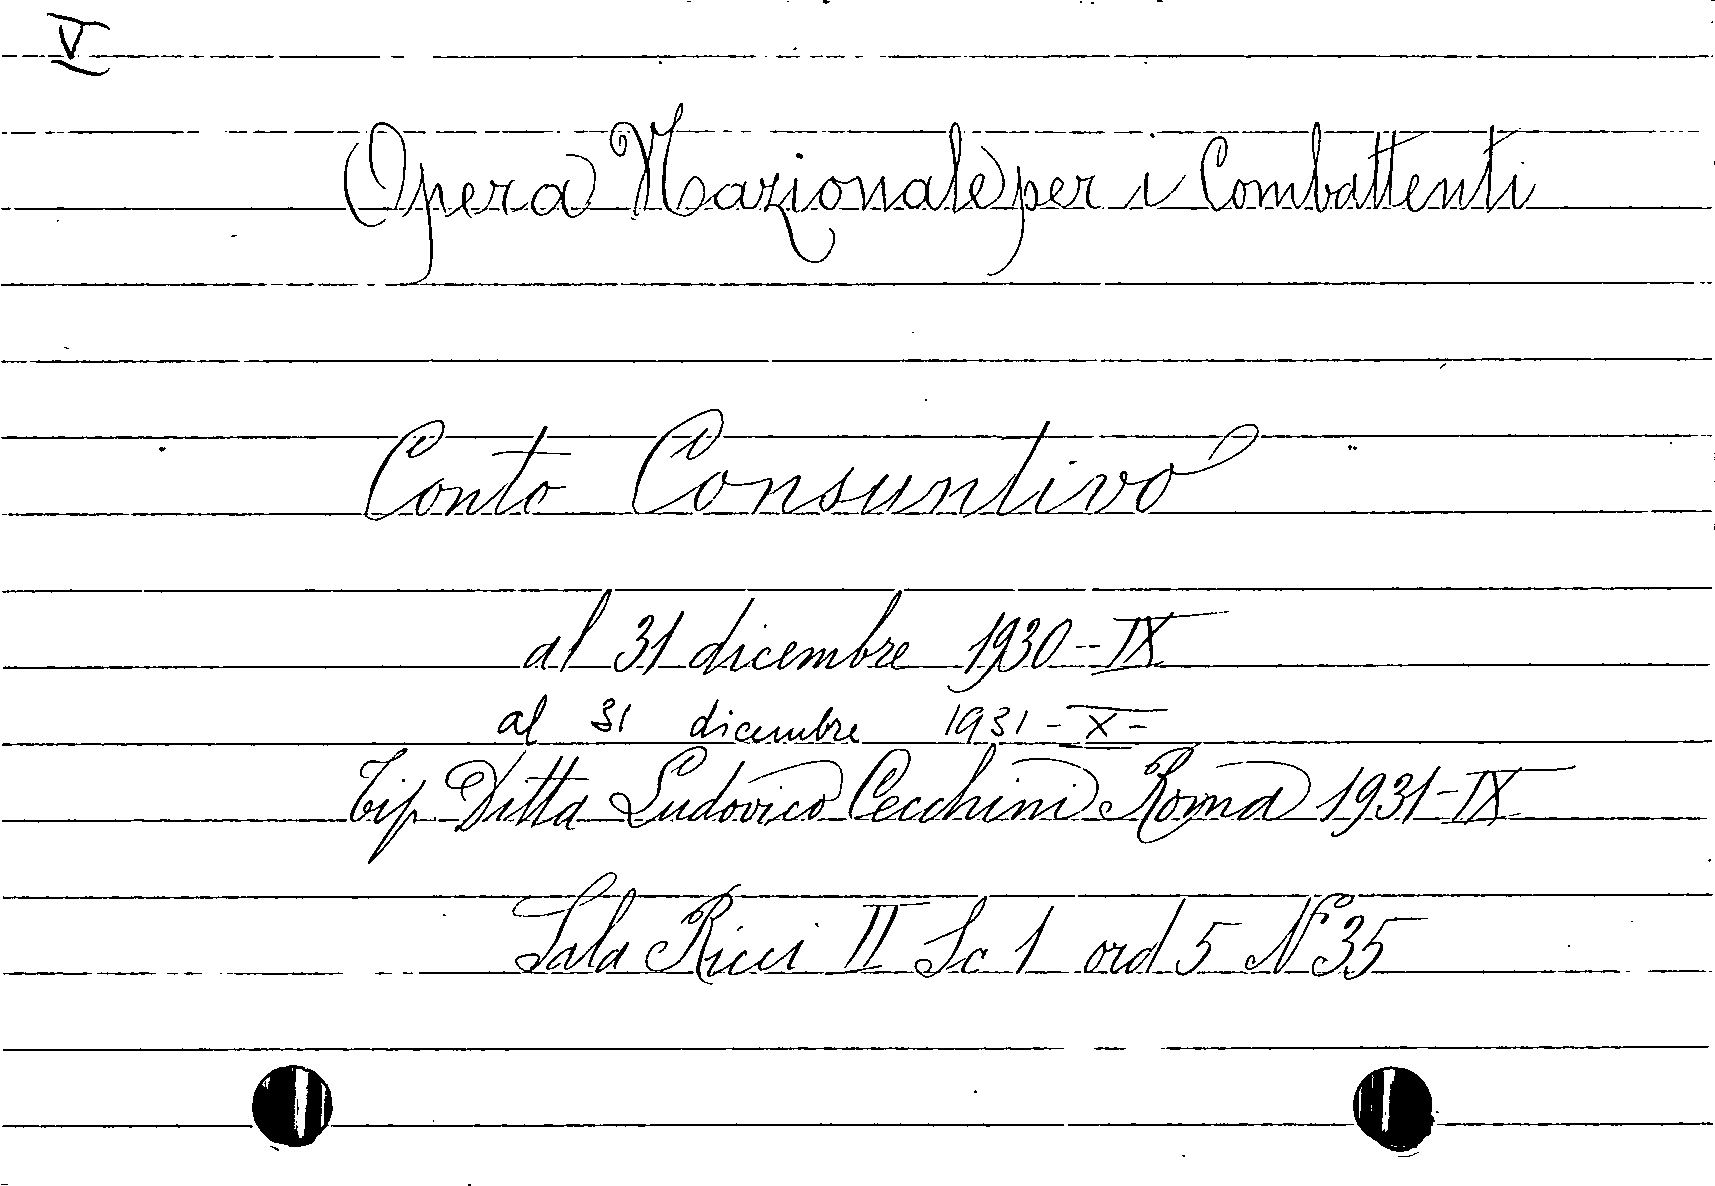 V
Opera Nazionale per i Combattenti
Conto Consuntivo
al 31 dicembre 1930-IX
al 31 dicembre 1931-X-
Tip Ditta Ludovico Cecchini Roma 1931-IX
Sala Ricci II Sc 1 ord 5 N° 35